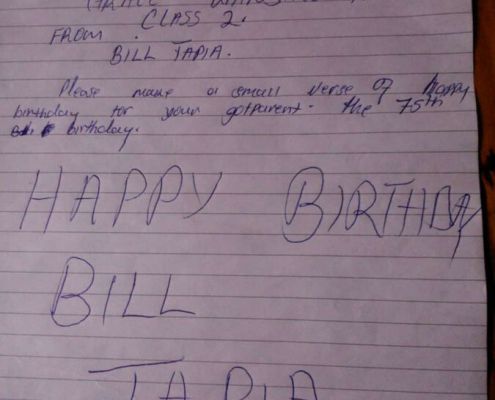 FROM CLASS 2.
BILL TAPIA.
Please make a small verse of happy
birthday for your gotparent. the 75th
birthday.
HAPPY BIRTHDAY
BILL
TAPIA